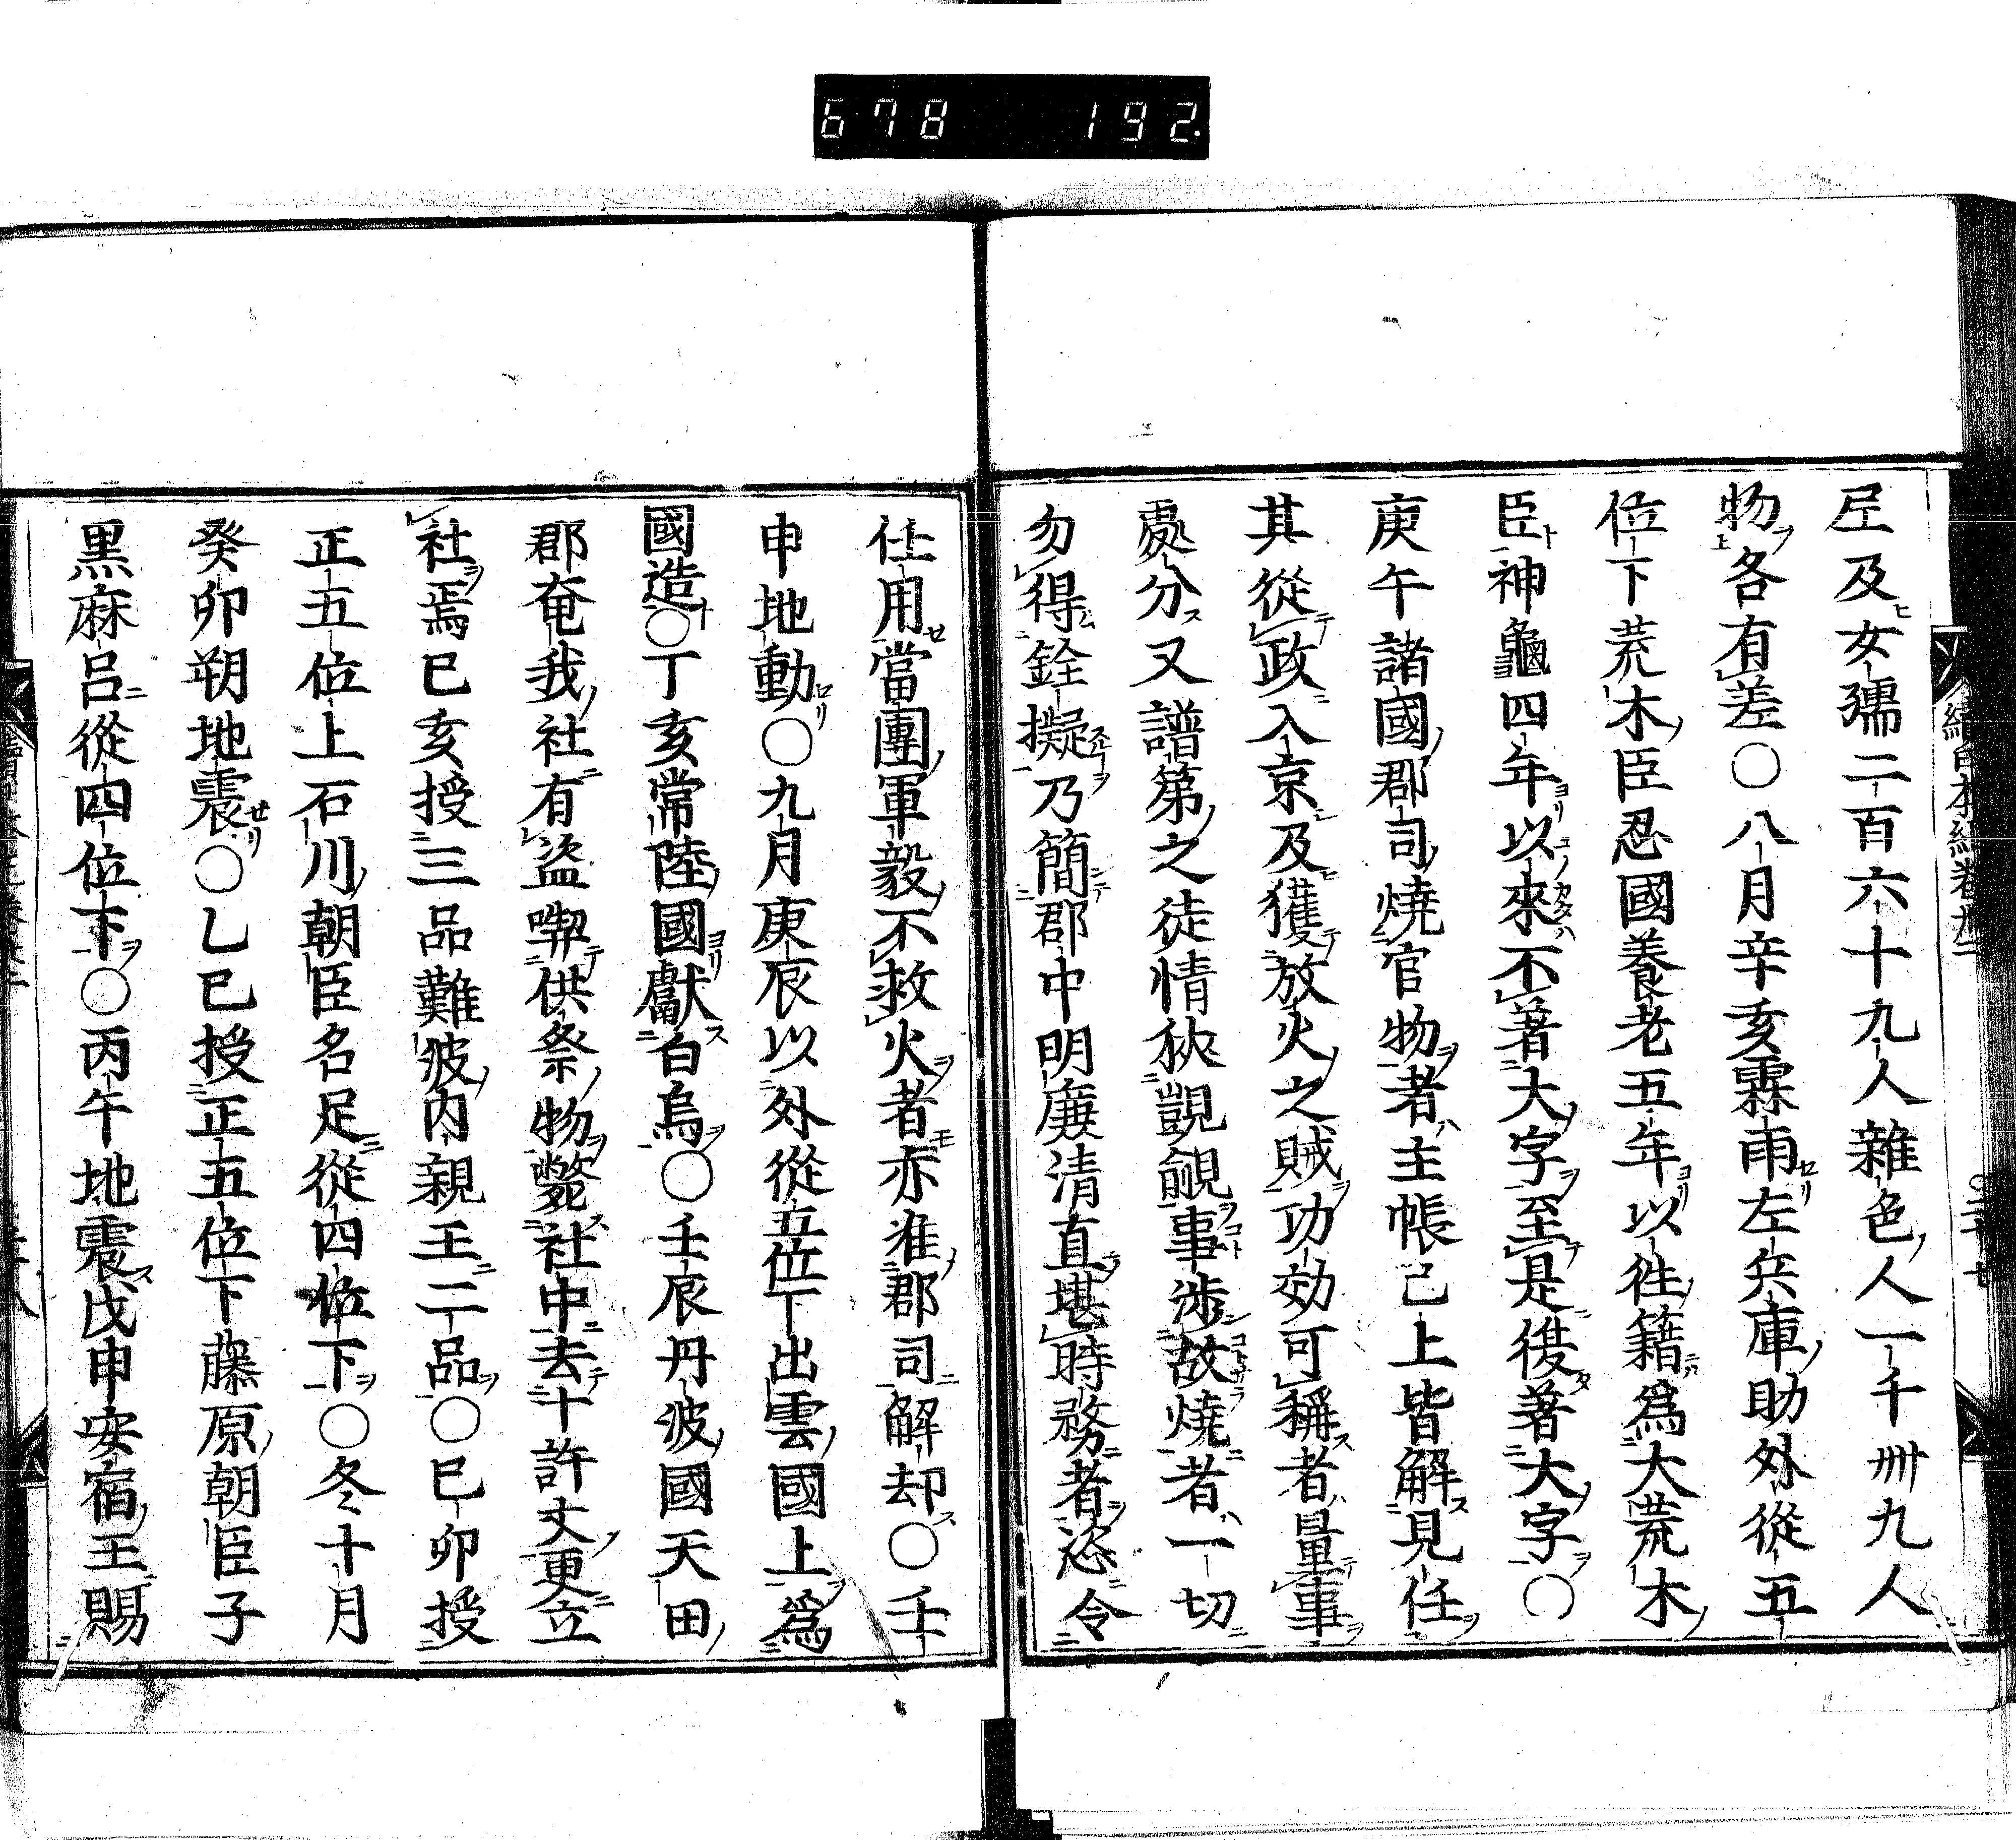 678 192.
𡉼及女孺二百六十九人雜色人一千卌九人
物各有差○八月辛亥霖雨左兵庫助外從五
位下荒木臣忍國養老五年以徃籍爲大荒木
臣神龜四年以來不著大字至是復著大字○
庚午諸國郡司燒官物者主帳已上皆解見任
其從政入京及獲放火之賊功効可稱者量事
處分又譜第之徒情狹覬覦事涉故燒者一切
勿得銓擬乃簡郡中明廉清直堪時務者恣令
任用當團軍毅不救火者亦准郡司解却○壬
申地動○九月庚辰以外從五位下出雲國上爲
國造○丁亥常陸國獻白烏○壬辰丹波國天田
郡奄我社有盜喫供祭物斃社中去十許丈更立
社焉已亥授三品難波內親王二品○已卯授
正五位上石川朝臣名足從四位下○冬十月
癸卯朔地震○乙巳授正五位下藤原朝臣子
黑麻呂從四位下○丙午地震戊申安宿王賜